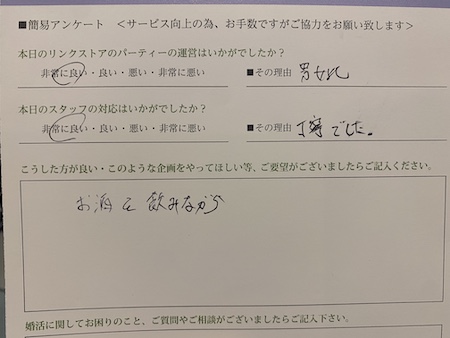 ■簡易アンケート <サービス向上の為、お手数ですがご協力をお願い致します>
本日のリンクストアのパーティーの運営はいかがでしたか?
非常に良い・良い・悪い・非常に悪い ■その理由
本日のスタッフの対応はいかがでしたか?
非常に良い・良い・悪い・非常に悪い ■その理由 丁寧でした。
こうした方が良い・このような企画をやってほしい等、ご要望がございましたらご記入ください。
お酒を飲みながら
婚活に関してお困りのこと、ご質問やご相談がございましたらご記入下さい。